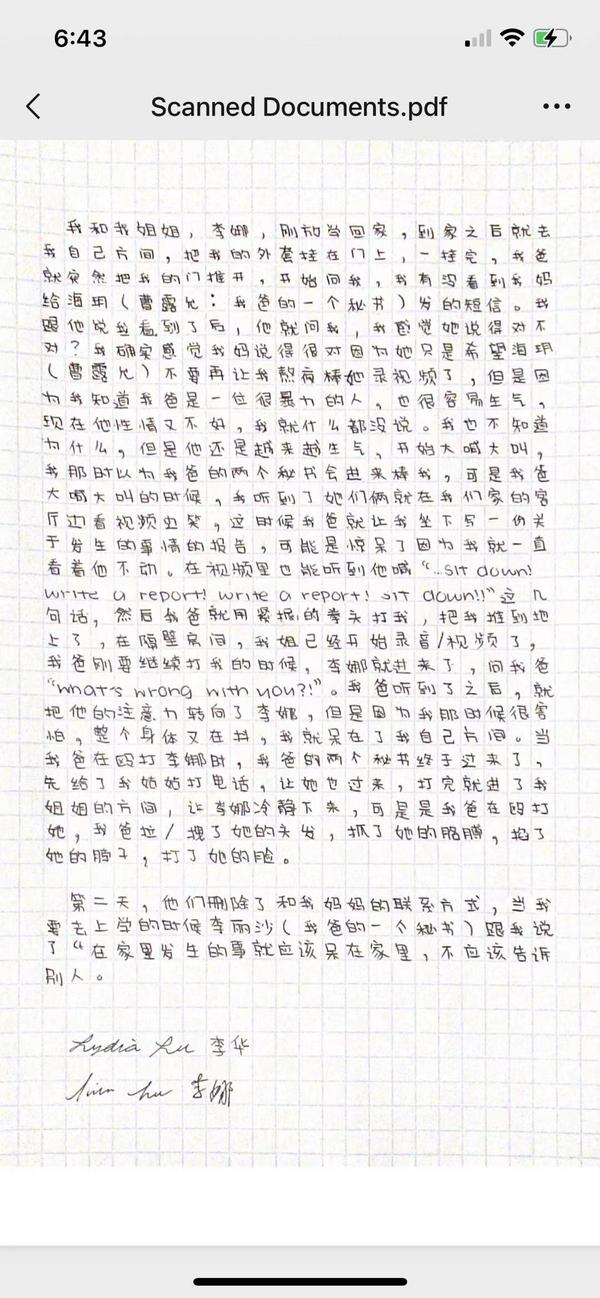 6:43
Scanned Documents.pdf
我和我姐姐，李娜，刚放学回家，到家之后就去
我自己房间，把我的外套挂在门上，一挂完，我爸
就突然把我的门推开，开始问我，我有没看到我妈
给海玥（曹露允：我爸的一个秘书）发的短信。我
跟他说我看到了后，他就问我，我感觉她说得对不
对？我确实感觉我妈说得很对因为她只是希望海玥
（曹露允）不要再让我熬夜棒她录视频了，但是因
为我知道我爸是一位很暴力的人，也很容易生气，
现在他性情又不好，我就什么都没说。我也不知道
为什么，但是他还是越来越生气，开始大喊大叫，
我那时以为我爸的两个秘书会进来棒我，可是我爸
大喊大叫的时候，我听到了她们俩就在我们家的客
厅边看视频边笑，这时候我爸就让我坐下写一份关
于发生的事情的报告，可能是惊呆了因为我就一直
看着他不动。在视频里也能听到他喊“...sit down!
write a report! write a report! sit down!!”这几
句话，然后我爸就用紧握的拳头打我，把我推到地
上了，在隔壁房间，我姐已经开始录音/视频了，
我爸刚要继续打我的时候，李娜就进来了，问我爸
“what's wrong with you?!”。我爸听到了之后，就
把他的注意力转向了李娜，但是因为我那时候很害
怕，整个身体又在抖，我就呆在了我自己房间。当
我爸在殴打李娜时，我爸的两个秘书终于过来了，
先给了我姑姑打电话，让她也过来，打完就进了我
姐姐的房间，让李娜冷静下来，可是是我爸在殴打
她，我爸拉/拽了她的头发，抓了她的胳膊，掐了
她的脖子，打了她的脸。
第二天，他们删除了和我妈妈的联系方式，当我
要去上学的时候李丽沙（我爸的一个秘书）跟我说
了“在家里发生的事就应该呆在家里，不应该告诉
别人。
Lydia Lu 李华
李娜